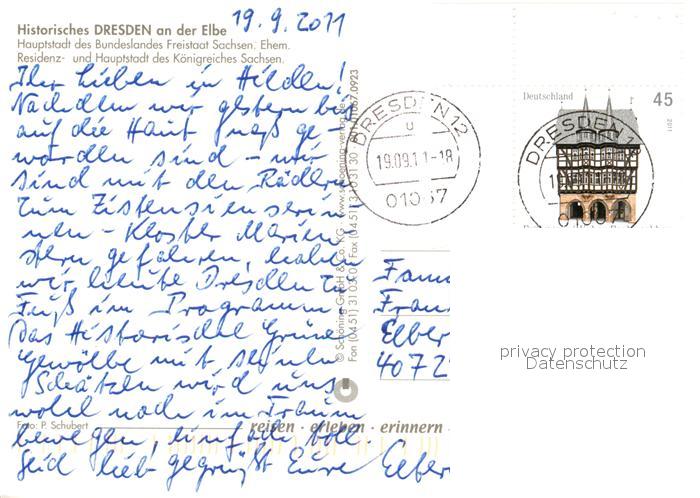 19.9.2011
Historisches DRESDEN an der Elbe
Hauptstadt des Bundeslandes Freistaat Sachsen. Ehem.
Residenz- und Hauptstadt des Königreiches Sachsen.
Ihr Lieben in Hilden!
Nachdem wir gestern bis
auf die Haut naß ge-
worden sind - wir
sind mit den Rädern
zum Zistensienserin
nen - Kloster Marien
stern gefahren, haben
wir heute Dresden zu
Fuß im Programm.
Das Historische Grüne
Gewölbe mit seinen
Schätzen wird uns
wohl noch im Traum
bewegen, einfach toll.
Seid lieb gegrüßt Eure Elber
Foto: P. Schubert
reisen · erleben · erinnern
© Schöning GmbH & Co. KG · www.schoening-verlag.de
Fon (04 51) 31 03-0 · Fax (04 51) 3 10 31 30
DRESDEN 12
u
19.09.11-18
010 67
Deutschland
45
2011
DRESDEN 1
Fam
Fran
Elber
4072
privacy protection
Datenschutz